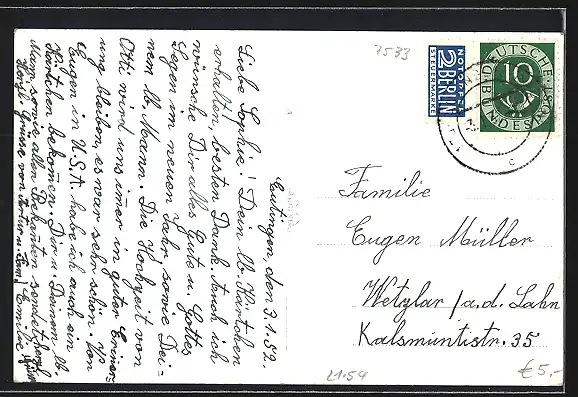 Eutingen, den 3.1.52.
Liebe Sophie! Dein lb. Kärtchen
erhalten, besten Dank. Auch ich
wünsche Dir alles Gute u. Gottes
Segen im neuen Jahr, sowie Dei-
nem lb. Mann. Die Hochzeit von
Otti wird uns immer in guter Erinner-
ung bleiben, es war sehr schön. Von
Eugen in U.S.A. habe ich auch ein
Kärtchen bekommen. Dir u. Deinem lb.
Mann, sowie allen Bekannten sendet herzl.
Herzl. Grüsse von u. Fam. Emilie
7533
NOTOPFER
2 BERLIN
STEUERMARKE
DEUTSCHE
10
BUNDESPOST
c
Familie
Eugen Müller
Wetzlar / a.d. Lahn
Kalsmuntstr. 35
21.54
€5,-